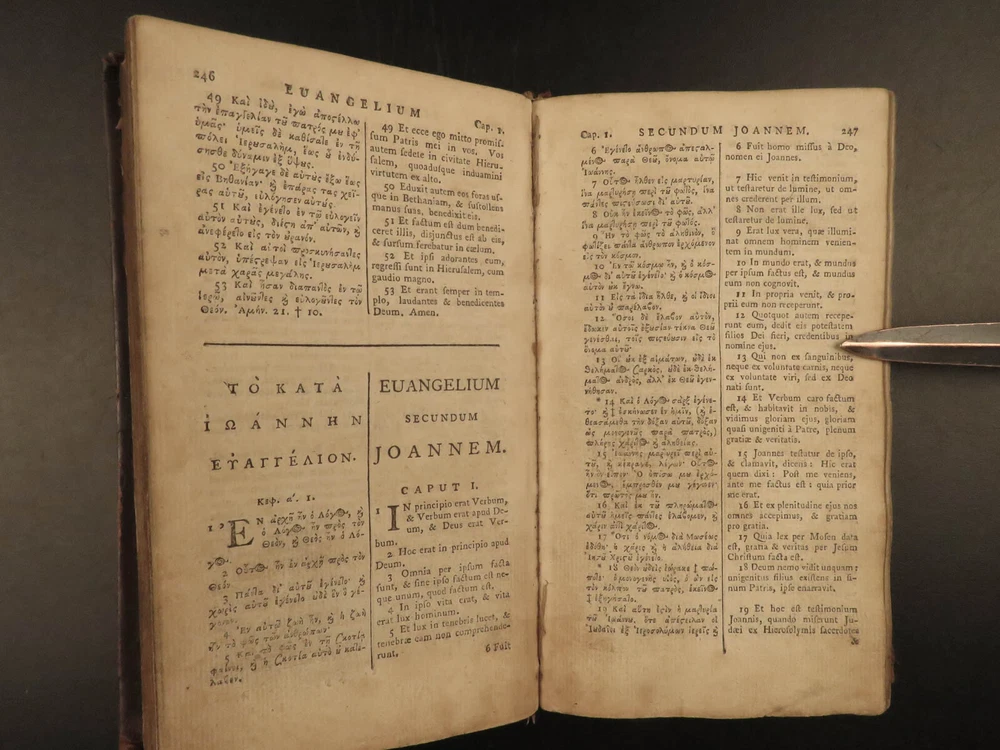 246
EUANGELIUM
Cap. 1.
49 Καὶ ἰδὺ, ἐγὼ ἀποςέλλω
τὴν ἐπαγγελίαν τῦ πατρός μυ ἐφ'
ὑμᾶς· ὑμεῖς δὲ καθίσατε ἐν τῇ
πόλει Ἱερυσαλὴμ, ἕως ὗ ἐνδύ-
σησθε δύναμιν ἐξ ὕψυς.
50 Ἐξήγαγε δὲ αὐτὺς ἔξω ἕως
εἰς Βηθανίαν· ϗ ἐπάρας τὰς χεῖ-
ρας αὑτῦ, εὐλόγησεν αὐτύς.
51 Καὶ ἐγένετο ἐν τῷ εὐλογεῖν
αὐτὸν αὐτὺς, διέςη ἀπ' αὐτῶν, ϗ
ἀνεφέρετο εἰς τὸν ὐρανόν.
52 Καὶ αὐτοὶ προσκυνήσαντες
αὐτὸν, ὑπέςρεψαν εἰς Ἱερυσαλὴμ
μετὰ χαρᾶς μεγάλης.
53 Καὶ ἦσαν διαπαντὸς ἐν τῷ
ἱερῷ, αἰνῦντες ϗ εὐλογῦντες τὸν
Θεόν. Ἀμήν. 21. † 10.
49 Et ecce ego mitto promiſ-
ſum Patris mei in vos. Vos
autem ſedete in civitate Hieru-
ſalem, quoadúſque induamini
virtutem ex alto.
50 Eduxit autem eos foras uſ-
que in Bethaniam, & ſuſtollens
manus ſuas, benedixit eis.
51 Et factum eſt dum benedi-
ceret illis, disjunctus eſt ab eis,
& ſurſum ferebatur in cœlum.
52 Et ipſi adorantes eum,
regreſſi ſunt in Hieruſalem, cum
gaudio magno.
53 Et erant ſemper in tem-
plo, laudantes & benedicentes
Deum. Amen.
ΤῸ ΚΑΤᾺ
ἸΩΆΝΝΗΝ
ΕΥ̓ΑΓΓΈΛΙΟΝ.
Κεφ. α΄. 1.
1 ἘΝ ἀρχῇ ἦν ὁ Λόγος, ϗ
ὁ Λόγος ἦν πρὸς τὸν
Θεὸν, ϗ Θεὸς ἦν ὁ Λό-
γος.
2 Οὗτος ἦν ἐν ἀρχῇ πρὸς τὸν
Θεόν.
3 Πάντα δι' αὐτῦ ἐγένετο· ϗ
χωρὶς αὐτῦ ἐγένετο ὐδὲ ἓν ὃ γέ-
γονεν.
4 Ἐν αὐτῷ ζωὴ ἦν, ϗ ἡ ζωὴ
ἦν τὸ φῶς τῶν ἀνθρώπων·
5 Καὶ τὸ φῶς ἐν τῇ σκοτίᾳ
φαίνει, ϗ ἡ σκοτία αὐτὸ ὐ κατέ-
λαβεν.
EUANGELIUM
SECUNDUM
JOANNEM.
CAPUT I.
1 IN principio erat Verbum,
& Verbum erat apud De-
um, & Deus erat Ver-
bum.
2 Hoc erat in principio apud
Deum.
3 Omnia per ipſum facta
ſunt, & ſine ipſo factum eſt ne-
que unum, quod factum eſt.
4 In ipſo vita erat, & vita
erat lux hominum.
5 Et lux in tenebris lucet, &
tenebræ eam non comprehende-
runt.
6 Fuit
Cap. 1.
SECUNDUM JOANNEM.
247
6 Ἐγένετο ἄνθρωπος ἀπεςαλ-
μένος παρὰ Θεῦ, ὄνομα αὐτῷ
Ἰωάννης.
7 Οὗτος ἦλθεν εἰς μαρτυρίαν,
ἵνα μαρτυρήσῃ περὶ τῦ φωτὸς, ἵνα
πάντες πιςεύσωσι δι' αὐτῦ.
8 Οὐκ ἦν ἐκεῖνος τὸ φῶς, ἀλλ'
ἵνα μαρτυρήσῃ περὶ τῦ φωτός.
9 Ἦν τὸ φῶς τὸ ἀληθινὸν, ὃ
φωτίζει πάντα ἄνθρωπον ἐρχόμενον
εἰς τὸν κόσμον.
10 Ἐν τῷ κόσμῳ ἦν, ϗ ὁ κόσ-
μος δι' αὐτῦ ἐγένετο· ϗ ὁ κόσμος
αὐτὸν ὐκ ἔγνω.
11 Εἰς τὰ ἴδια ἦλθε, ϗ οἱ ἴδιοι
αὐτὸν ὐ παρέλαβον.
12 Ὅσοι δὲ ἔλαβον αὐτὸν,
ἔδωκεν αὐτοῖς ἐξυσίαν τέκνα Θεῦ
γενέσθαι, τοῖς πιςεύυσιν εἰς τὸ
ὄνομα αὐτῦ·
13 Οἳ ὐκ ἐξ αἱμάτων, ὐδὲ ἐκ
θελήματος σαρκὸς, ὐδὲ ἐκ θελή-
ματος ἀνδρὸς, ἀλλ' ἐκ Θεῦ ἐγεν-
νήθησαν.
* 14 Καὶ ὁ Λόγος σὰρξ ἐγένε-
το· ϗ ‡ ἐσκήνωσεν ἐν ἡμῖν, (ϗ ἐ-
θεασάμεθα τὴν δόξαν αὐτῦ, δόξαν
ὡς μονογενῦς παρὰ πατρὸς,)
πλήρης χάριτος ϗ ἀληθείας.
15 Ἰωάννης μαρτυρεῖ περὶ αὐ-
τῦ, ϗ κέκραγε, λέγων· Οὗτος
ἦν ὃν εἶπον· Ὁ ὀπίσω μυ ἐρχό-
μενος, ἔμπροσθέν μυ γέγονεν·
ὅτι πρῶτός μυ ἦν.
16 Καὶ ἐκ τῦ πληρώματος
αὐτῦ ἡμεῖς πάντες ἐλάβομεν, ϗ
χάριν ἀντὶ χάριτος.
17 Ὅτι ὁ νόμος διὰ Μωσέως
ἐδόθη· ἡ χάρις ϗ ἡ ἀλήθεια διὰ
Ἰησῦ Χριςῦ ἐγένετο.
* 18 Θεὸν ὐδεὶς ἑώρακε ‡ πώ-
ποτε· ὁ μονογενὴς υἱὸς, ὁ ὢν εἰς
τὸν κόλπον τῦ πατρὸς, ἐκεῖνος
‡ ἐξηγήσατο.
19 Καὶ αὕτη ἐςὶν ἡ μαρτυρία
τῦ Ἰωάννυ, ὅτε ἀπέςειλαν οἱ
Ἰυδαῖοι ἐξ Ἱεροσολύμων ἱερεῖς ϗ
6 Fuit homo miſſus à Deo,
nomen ei Joannes.
7 Hic venit in teſtimonium,
ut teſtaretur de lumine, ut om-
nes crederent per illum.
8 Non erat ille lux, ſed ut
teſtaretur de lumine.
9 Erat lux vera, quæ illumi-
nat omnem hominem venien-
tem in mundum.
10 In mundo erat, & mundus
per ipſum factus eſt, & mundus
eum non cognovit.
11 In propria venit, & pro-
prii eum non receperunt.
12 Quotquot autem recepe-
runt eum, dedit eis poteſtatem
filios Dei fieri, credentibus in
nomine ejus.
13 Qui non ex ſanguinibus,
neque ex voluntate carnis, neque
ex voluntate viri, ſed ex Deo
nati ſunt.
14 Et Verbum caro factum
eſt, & habitavit in nobis, &
vidimus gloriam ejus, gloriam
quaſi unigeniti à Patre, plenum
gratiæ & veritatis.
15 Joannes teſtatur de ipſo,
& clamavit, dicens: Hic erat
quem dixi: Poſt me veniens,
ante me factus eſt: quia prior
me erat.
16 Et ex plenitudine ejus nos
omnes accepimus, & gratiam
pro gratia.
17 Quia lex per Moſen data
eſt, gratia & veritas per Jeſum
Chriſtum facta eſt.
18 Deum nemo vidit unquam:
unigenitus filius exiſtens in ſi-
num Patris, ipſe enarravit.
19 Et hoc eſt teſtimonium
Joannis, quando miſerunt Ju-
dæi ex Hieroſolymis ſacerdotes
&